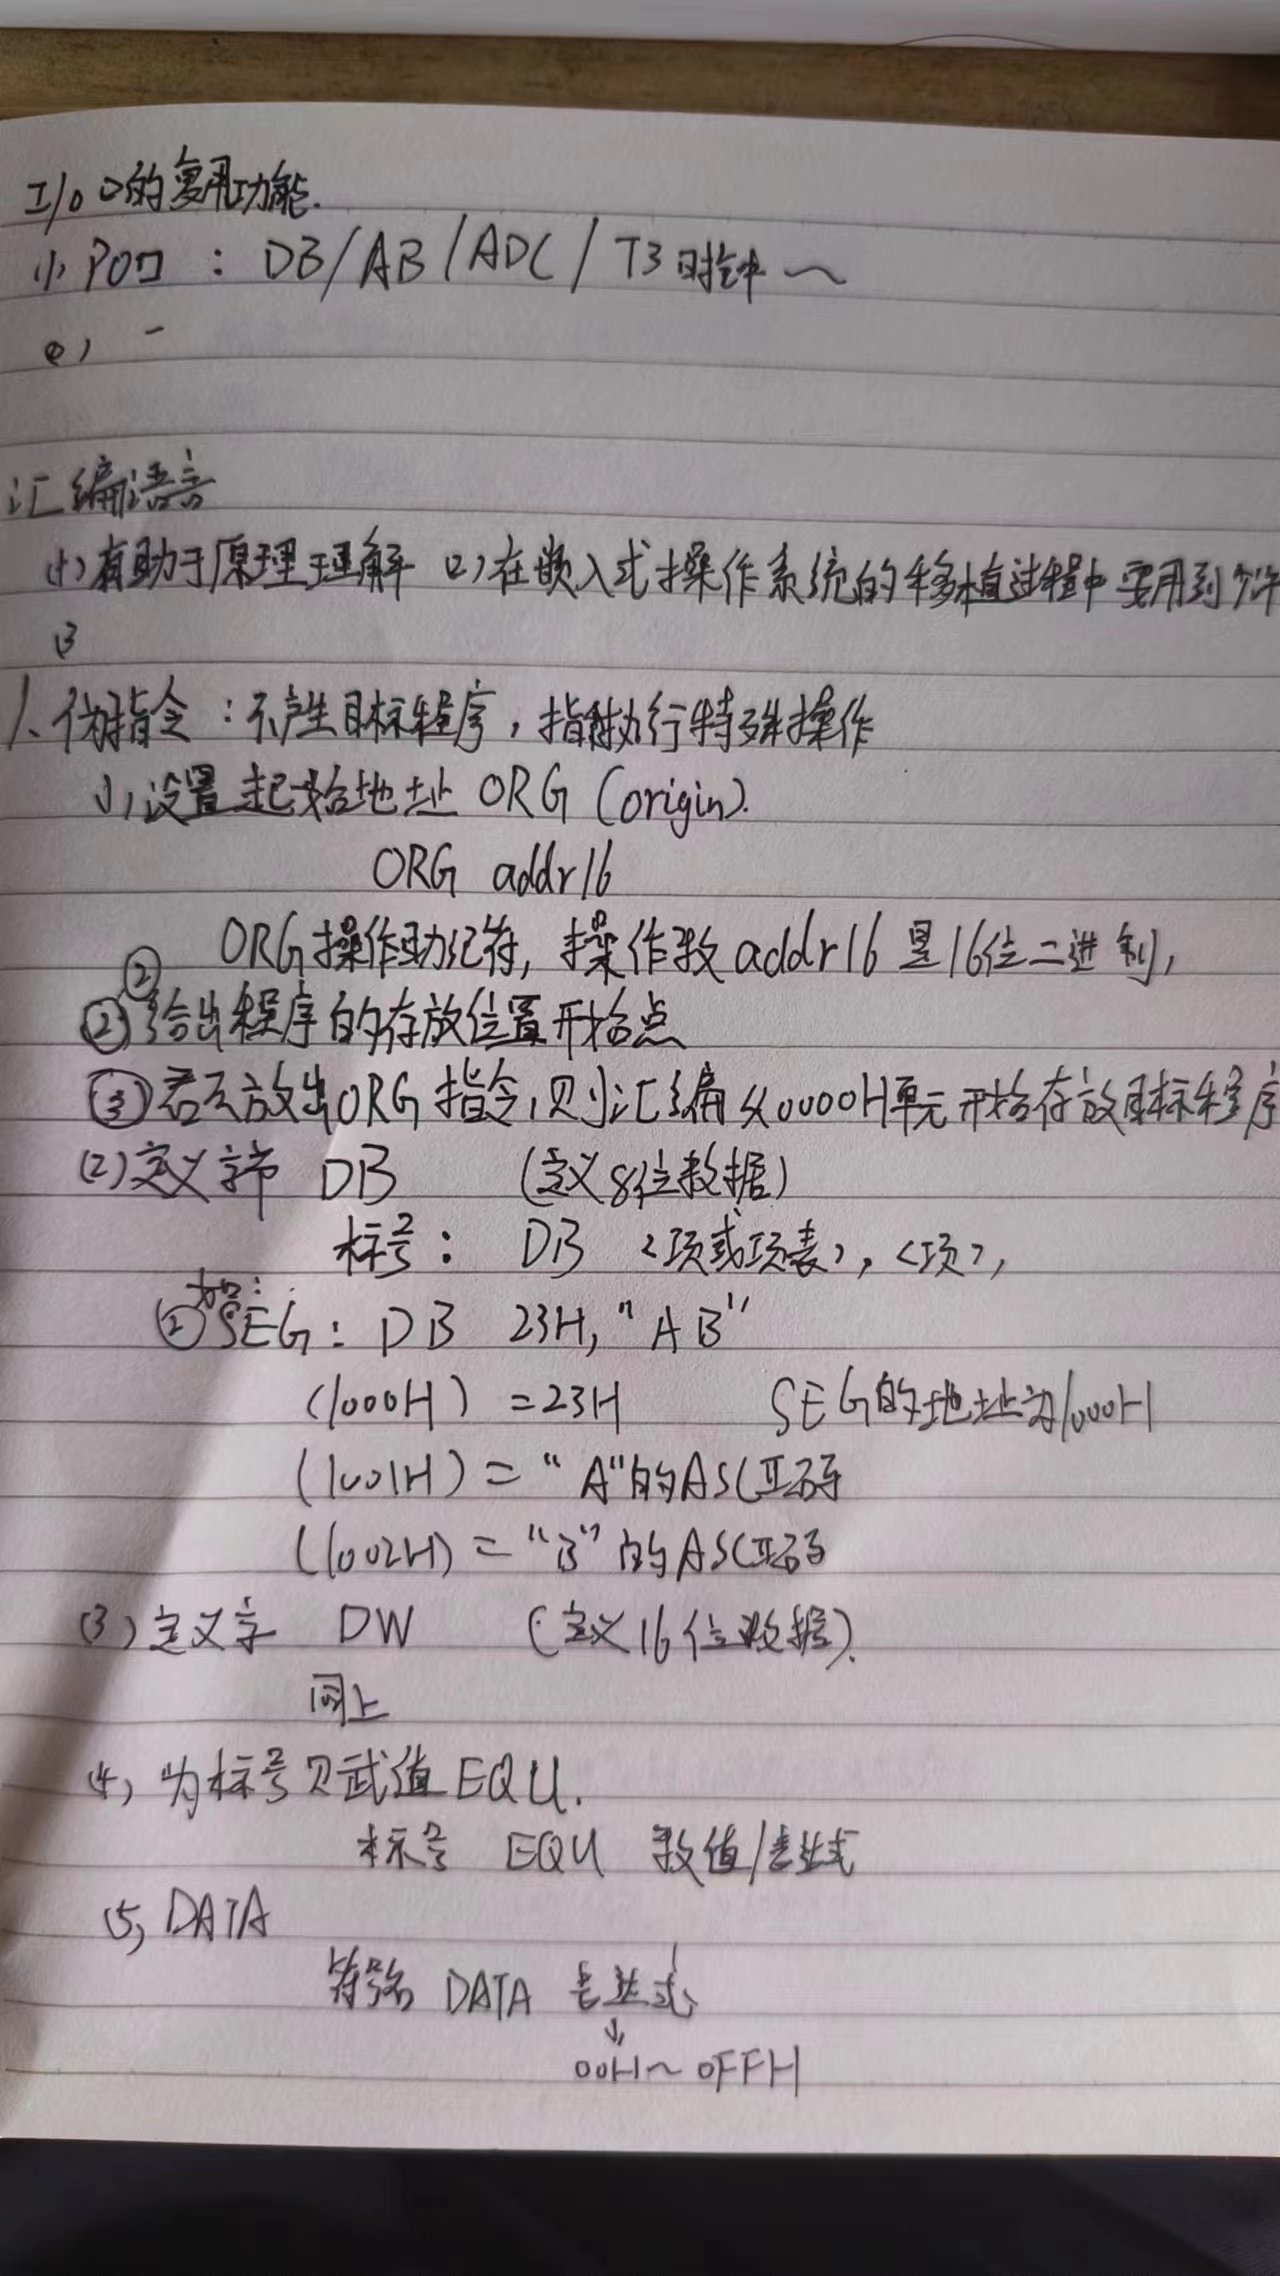 I/O口的复用功能.
(1) P0口 : DB/AB/ADC/T3时钟~
(2) -
汇编语言
(1)有助于原理理解 (2)在嵌入式操作系统的移植过程中要用到
(3
1、伪指令:不产生目标程序,指挥执行特殊操作
(1)设置起始地址 ORG (origin).
ORG addr16
ORG操作助记符, 操作数addr16 是16位二进制,
②
②给出程序的存放位置开始点
③若不放出ORG指令,则汇编从0000H单元开始存放目标程序
(2)定义字节 DB (定义8位数据)
标号: DB <项或项表>, <项>,
如:
② SEG: DB 23H, "AB"
(1000H) =23H SEG的地址为1000H
(1001H) = "A"的ASCII码
(1002H) = "B"的ASCII码
(3) 定义字 DW (定义16位数据).
同上
(4) 为标号赋值EQU.
标号 EQU 数值/表达式
(5) DATA
符号名 DATA 表达式
↓
00H~0FFH